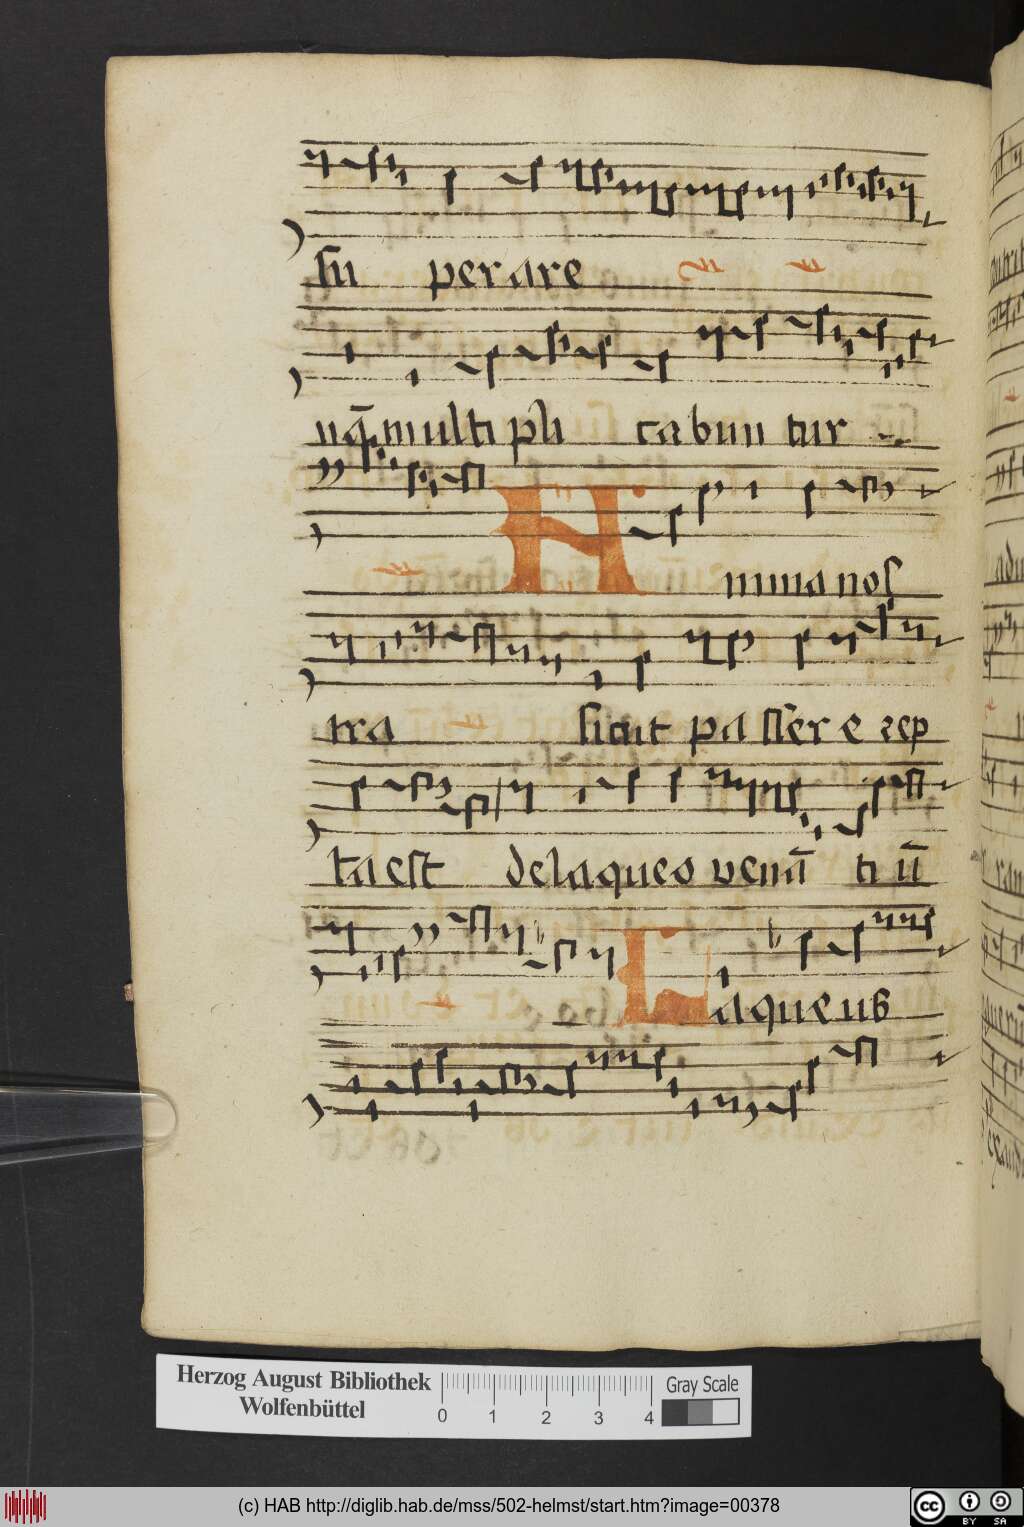 su perare
nq̄ multi pli cabun tur
A nima nos
tra sicut passer e rep
ta est de laqueo venā ti ū
Laqueus
Herzog August Bibliothek
Wolfenbüttel
0 1 2 3 4
Gray Scale
(c) HAB http://diglib.hab.de/mss/502-helmst/start.htm?image=00378
cc BY SA